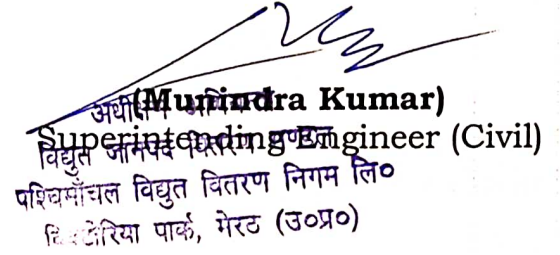 (Munindra Kumar)
अधीक्षण अभियन्ता
Superintending Engineer (Civil)
विद्युत जानपद वितरण मण्डल
पश्चिमाँचल विद्युत वितरण निगम लि०
विक्टोरिया पार्क, मेरठ (उ०प्र०)